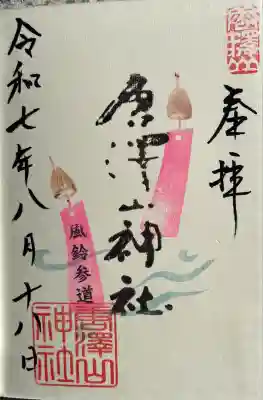 奉拝
唐澤山神社
令和七年八月十八日
風鈴参道
唐澤山
唐澤山神社